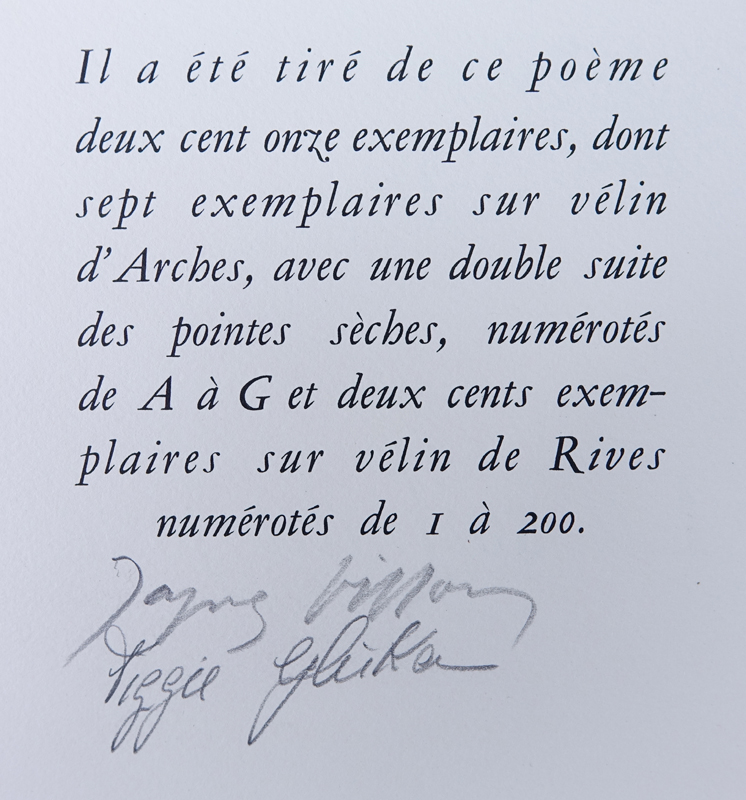 Il a été tiré de ce poème
deux cent onze exemplaires, dont
sept exemplaires sur vélin
d'Arches, avec une double suite
des pointes sèches, numérotés
de A à G et deux cents exem-
plaires sur vélin de Rives
numérotés de 1 à 200.